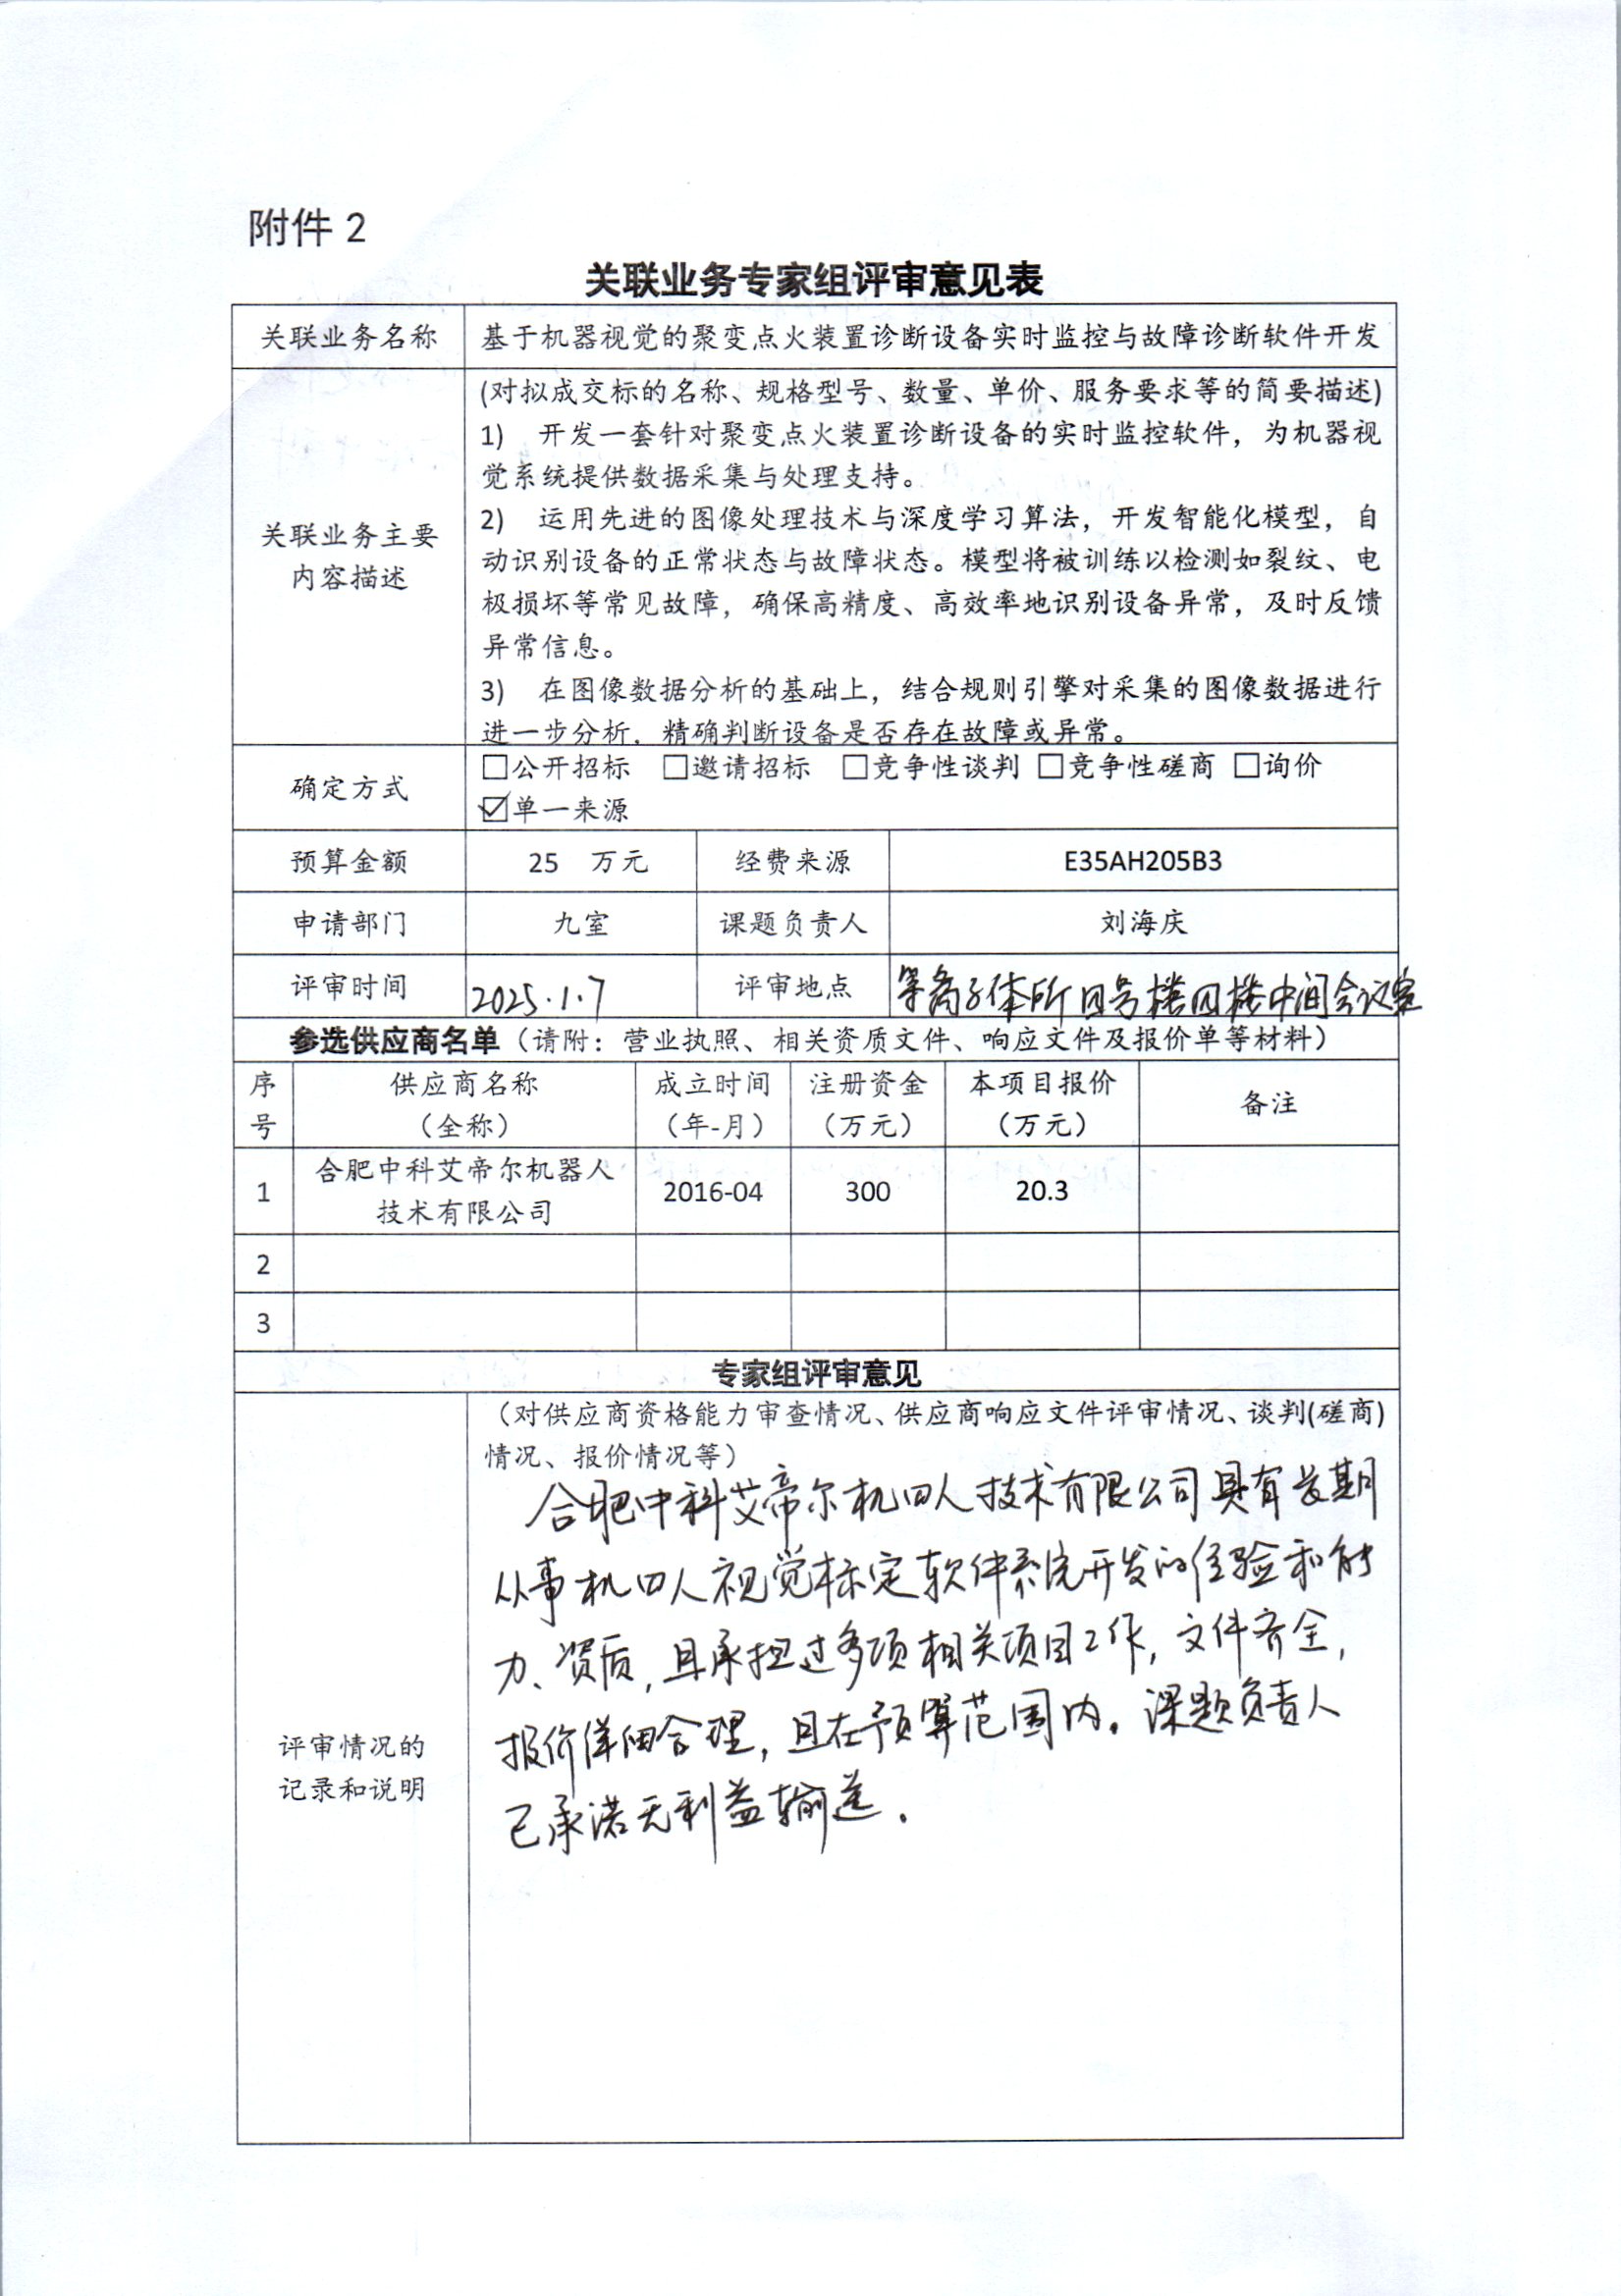 附件 2
关联业务专家组评审意见表
关联业务名称 基于机器视觉的聚变点火装置诊断设备实时监控与故障诊断软件开发
关联业务主要内容描述
(对拟成交标的名称、规格型号、数量、单价、服务要求等的简要描述)
1) 开发一套针对聚变点火装置诊断设备的实时监控软件，为机器视
觉系统提供数据采集与处理支持。
2) 运用先进的图像处理技术与深度学习算法，开发智能化模型，自
动识别设备的正常状态与故障状态。模型将被训练以检测如裂纹、电
极损坏等常见故障，确保高精度、高效率地识别设备异常，及时反馈
异常信息。
3) 在图像数据分析的基础上，结合规则引擎对采集的图像数据进行
进一步分析，精确判断设备是否存在故障或异常。
确定方式 □公开招标 □邀请招标 □竞争性谈判 □竞争性磋商 □询价
☑单一来源
预算金额 25 万元 经费来源 E35AH205B3
申请部门 九室 课题负责人 刘海庆
评审时间 2025.1.7 评审地点 等离子体所四号楼四楼中间会议室
参选供应商名单（请附：营业执照、相关资质文件、响应文件及报价单等材料）
序号 供应商名称（全称） 成立时间（年-月） 注册资金（万元） 本项目报价（万元） 备注
1 合肥中科艾帝尔机器人技术有限公司 2016-04 300 20.3
2
3
专家组评审意见
评审情况的记录和说明
（对供应商资格能力审查情况、供应商响应文件评审情况、谈判(磋商)
情况、报价情况等）
合肥中科艾帝尔机四人技术有限公司具有长期
从事机四人视觉标定软件系统开发的经验和能
力、资质，且承担过多项相关项目工作，文件齐全，
报价详细合理，且在预算范围内。课题负责人
已承诺无利益输送。